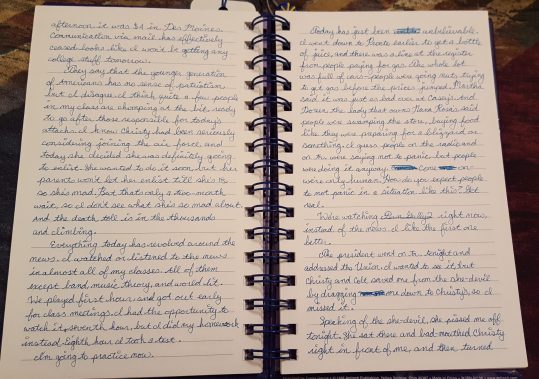 afternoon it was $4 in Des Moines.
Communication via mail has effectively
ceased. Looks like I won't be getting any
college stuff tomorrow.
They say that the younger generation
of Americans has no sense of patriotism
but I disagree. I think quite a few people
in my class are chomping at the bit, ready
to go after those responsible for today's
attacks. I know Christy had been seriously
considering joining the air force, and
today she decided she was definitely going
to enlist. She wanted to do it soon, but her
parents won't let her enlist till she's 18
so she's mad. But that's only a two month
wait, so I don't see what she's so mad about.
And the death toll is in the thousands
and climbing.
Everything today has revolved around the
news. I watched or listened to the news
in almost all of my classes. All of them
except band, music theory, and world lit.
We played first hour, and got out early
for class meetings. I had the opportunity to
watch it seventh hour, but I did my homework
instead. Eighth hour I took a test.
I'm going to practice now.
Today has just been unbelievable.
I went down to Pronto earlier to get a bottle
of juice, and there was a line at the register
from people paying for gas. The whole lot
was full of cars - people were going nuts trying
to get gas before the prices jumped. Martha
said it was just as bad over at Casey's. And
the lady that owns said
people were swamping the store, buying food
like they were preparing for a blizzard or
something. I guess people on the radio and
on TV were saying not to panic, but people
were doing it anyway. Come on
were only human. How do you expect people
to not panic in a situation like this? Get
real.
We're watching right now,
instead of the news. I like the first one
better.
The president went on TV tonight and
addressed the Union. I wanted to see it, but
Christy and Cole saved me from the she-devil
by dragging me down to Christy's, so I
missed it.
Speaking of the she-devil, she pissed me off
tonight. She sat there and bad-mouthed Christy
right in front of me, and then turned